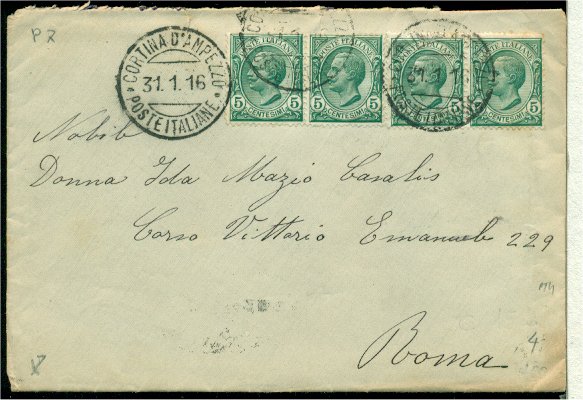 P Z
CORTINA D'AMPEZZO
31.1.16
POSTE ITALIANE
POSTE ITALIANE
5 CENTESIMI 5
POSTE ITALIANE
5 CENTESIMI 5
31.1.16
5 CENTESIMI 5
POSTE ITALIANE
5 CENTESIMI 5
Nobile
Donna Ida Mazio Casalis
Corso Vittorio Emanuele 229
Roma